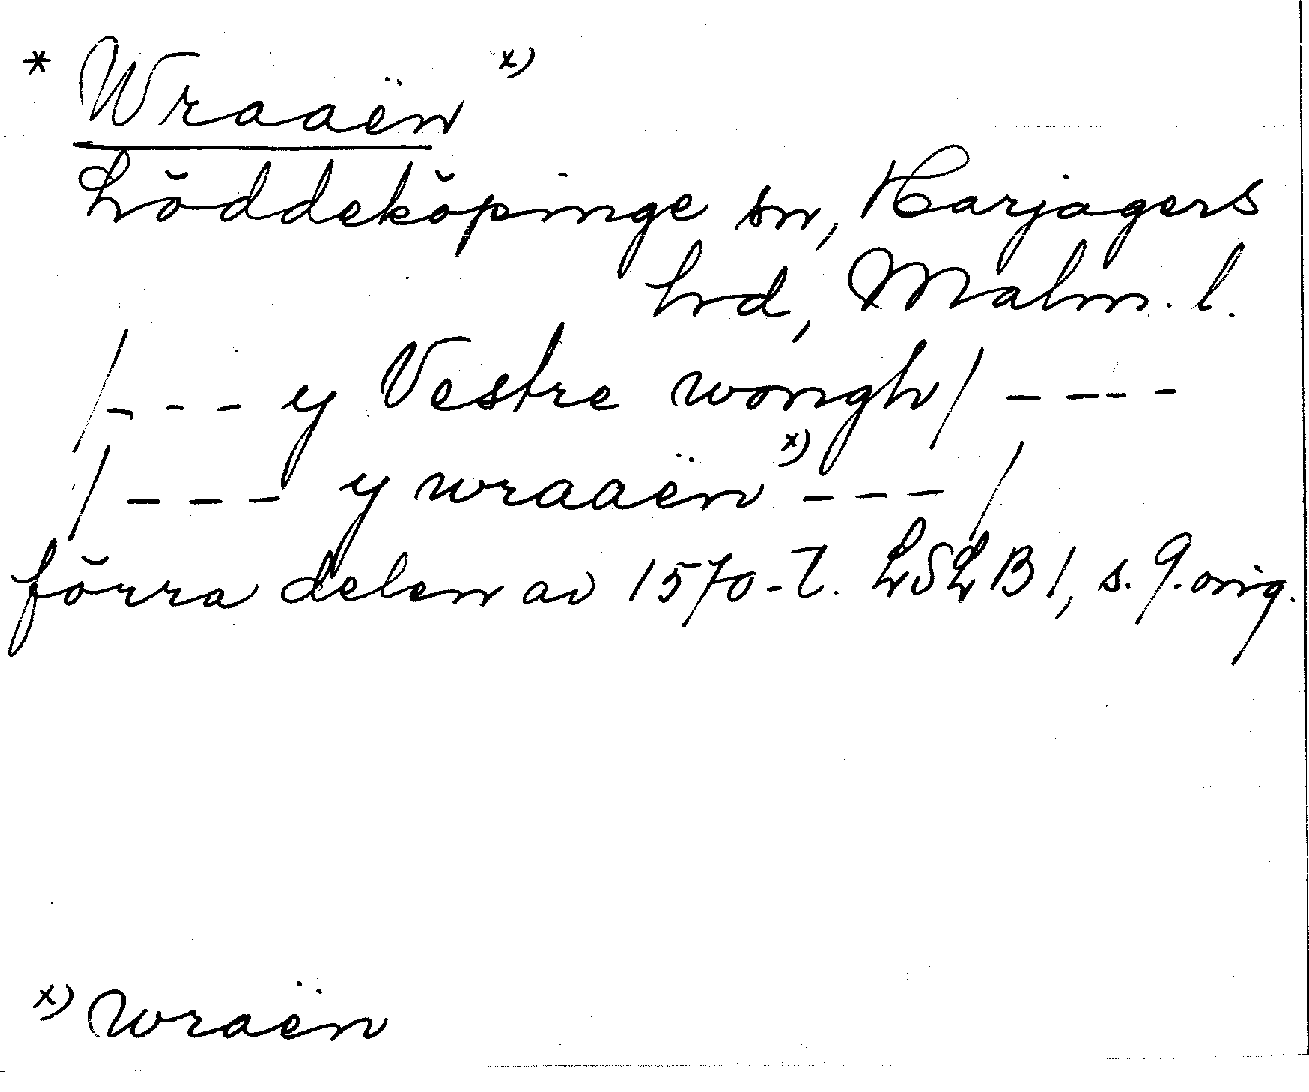 * Wraaën x)
Löddeköpinge sn, Harjagers
hrd, Malm. l.
/--- y Vestre wongh/ ----
/--- y wraaën x) --- /
förra delen av 1570-t. LSLB 1, s. 9. orig.
x) wraën